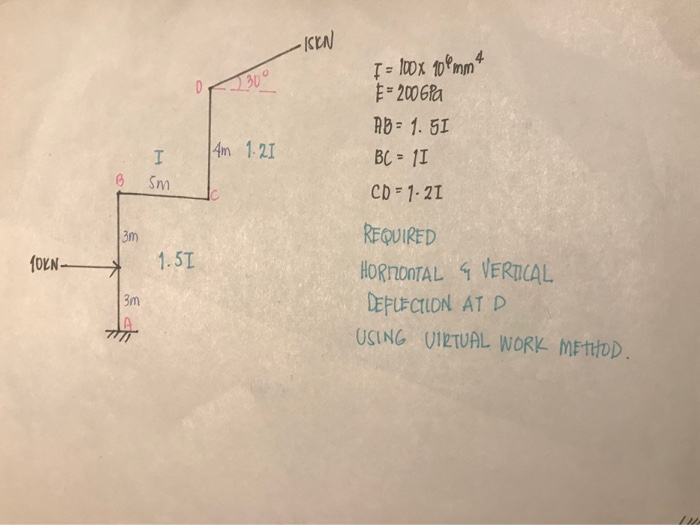 15KN
D
30°
4m 1.2I
I
B
5m
C
3m
10KN
1.5I
3m
A
I = 100 x 10⁶ mm⁴
E = 200 GPa
AB = 1.5I
BC = 1I
CD = 1.2I
REQUIRED
HORIZONTAL & VERTICAL
DEFLECTION AT D
USING VIRTUAL WORK METHOD.